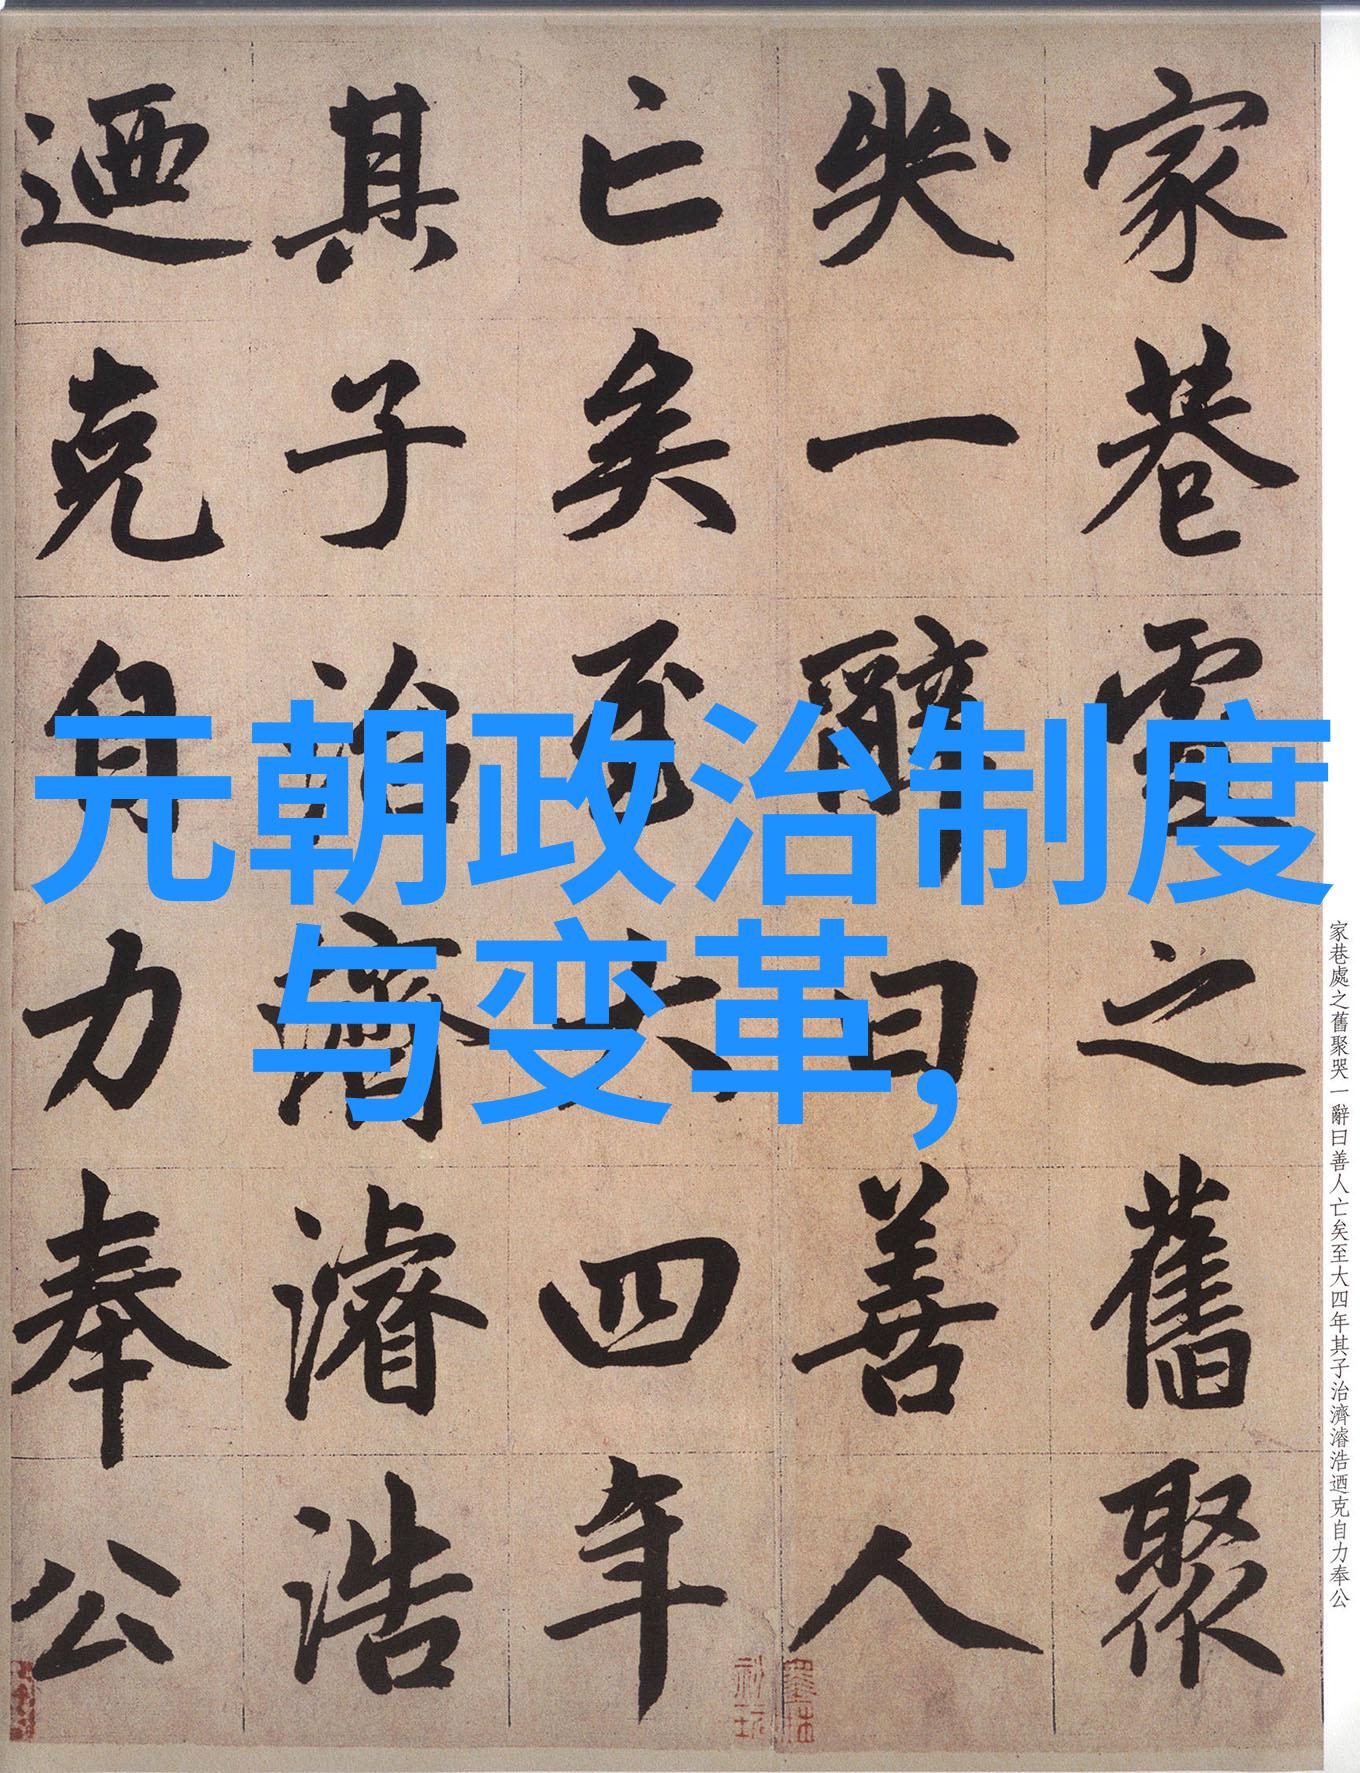 家巷處之舊聚
哭一辭曰善人
亡矣至大四年
其子治濟濬浩
迺克自力奉公
元朝政治制度
与变革,
家巷處之舊聚哭一辭曰善人亡矣至大四年其子治濟濬浩迺克自力奉公